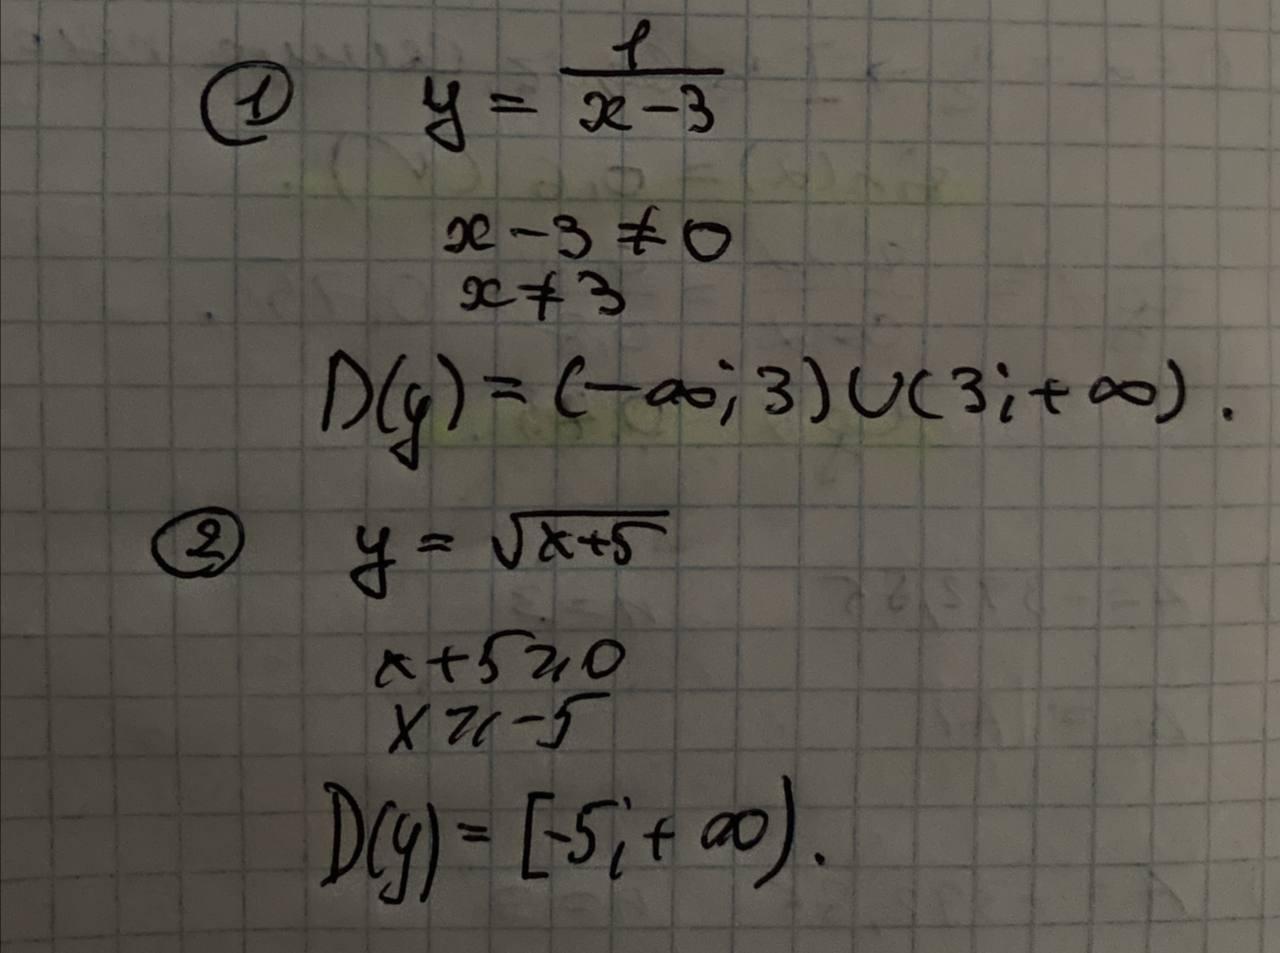 ① y = 1/(x-3)
x-3≠0
x≠3
D(y)=(-∞;3)∪(3;+∞).
② y = √(x+5)
x+5⩾0
x⩾-5
D(y)=[-5;+∞).